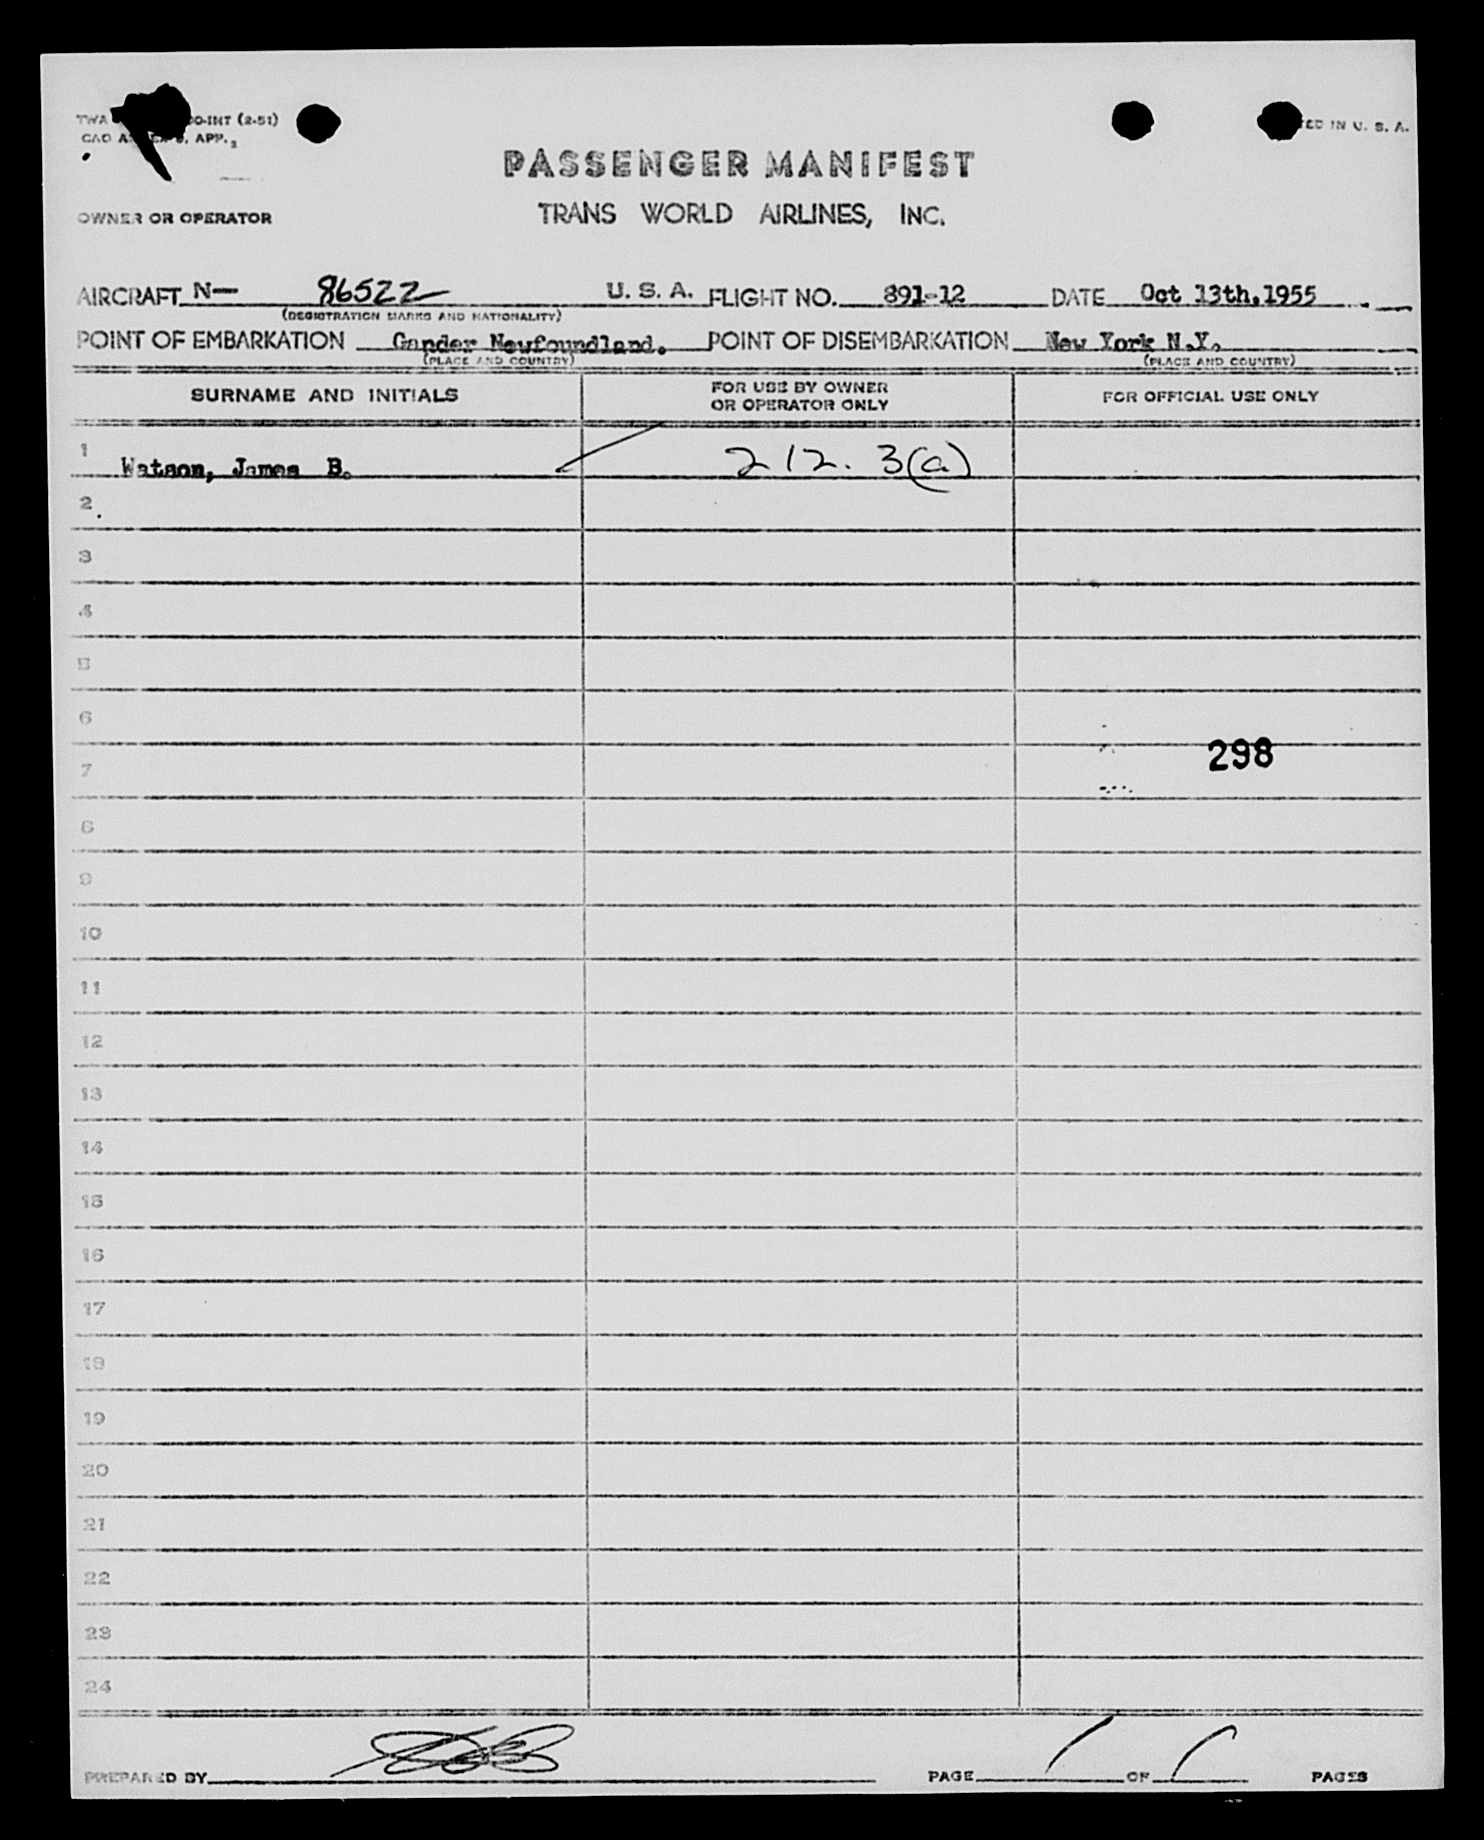 TWA O-INT (2-51)
CAO APP. 2
IN U. S. A.
PASSENGER MANIFEST
OWNER OR OPERATOR
TRANS WORLD AIRLINES, INC.
AIRCRAFT N- 86522 U. S. A. FLIGHT NO. 891-12 DATE Oct 13th,1955
(REGISTRATION MARKS AND NATIONALITY)
POINT OF EMBARKATION Gander Newfoundland. POINT OF DISEMBARKATION New York N.Y.
(PLACE AND COUNTRY) (PLACE AND COUNTRY)
SURNAME AND INITIALS FOR USE BY OWNER OR OPERATOR ONLY FOR OFFICIAL USE ONLY
1 Watson, James B. 212. 3(a)
2
3
4
5
6
7 298
8
9
10
11
12
13
14
15
16
17
18
19
20
21
22
23
24
PREPARED BY PAGE 1 OF 1 PAGES